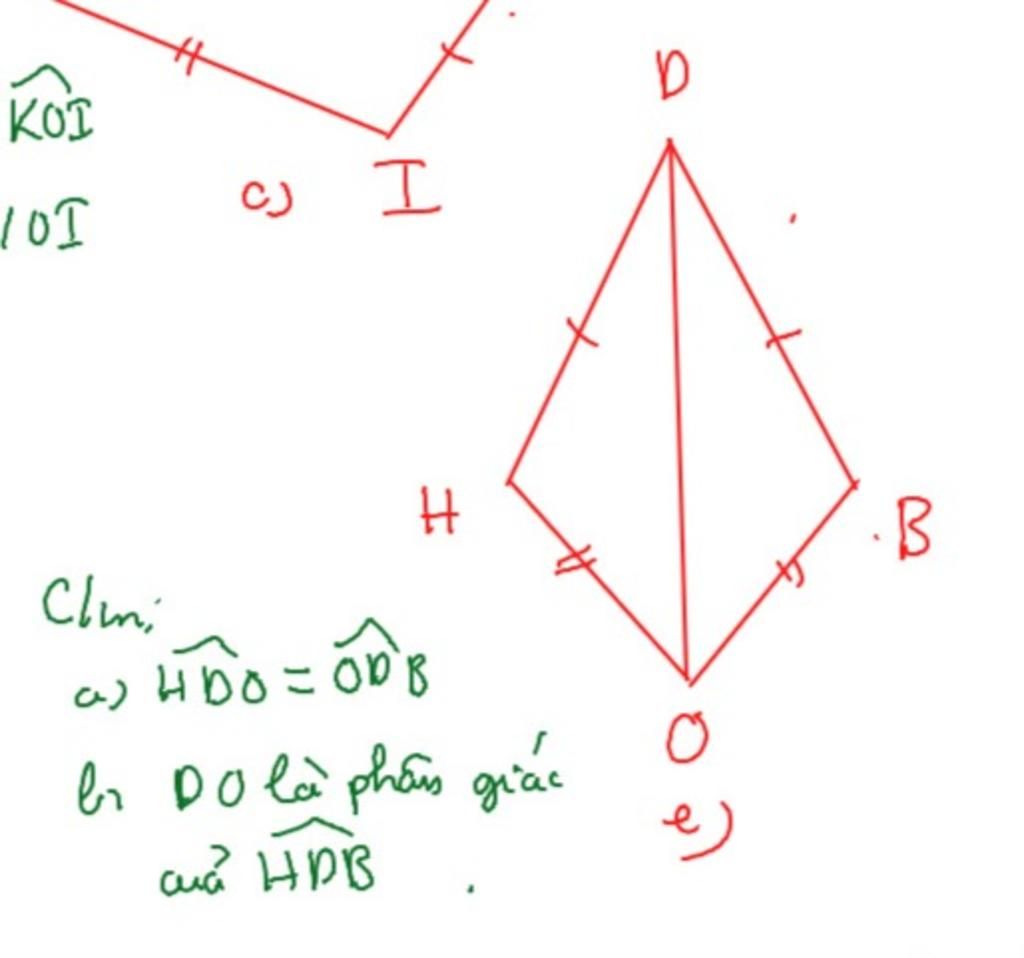 KOI
c) I
OI
D
H
B
C/m:
a) HDO = ODB
b) DO là phân giác
O
của HDB
e)